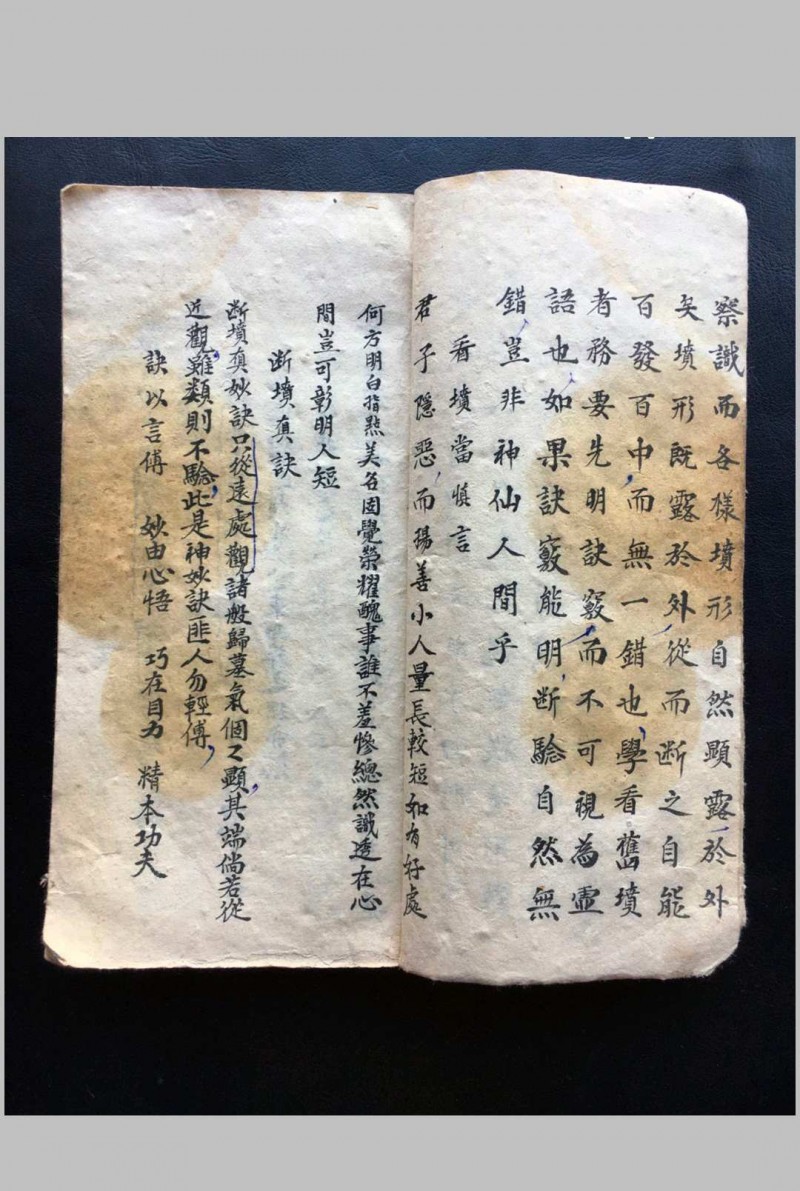 察識而各樣墳形自然顯露於外
矣墳形既露於外從而断之自能
百發百中而無一錯也學看舊墳
者務要先明訣竅而不可視為虛
語也如果訣竅能明断驗自然無
錯豈非神仙人間乎
看墳當慎言
君子隱惡而揚善小人量長較短如有好處
何方明白指點美名固覺榮耀醜事誰不羞慘總然識透在心
間豈可彰明人短
断墳真訣
断墳真妙訣只從遠處觀諸般歸墓氣個〻顯其端倘若從
近觀雖類則不驗此是神妙訣匪人勿輕傅
訣以言傅 妙由心悟 巧在目力 精本功夫